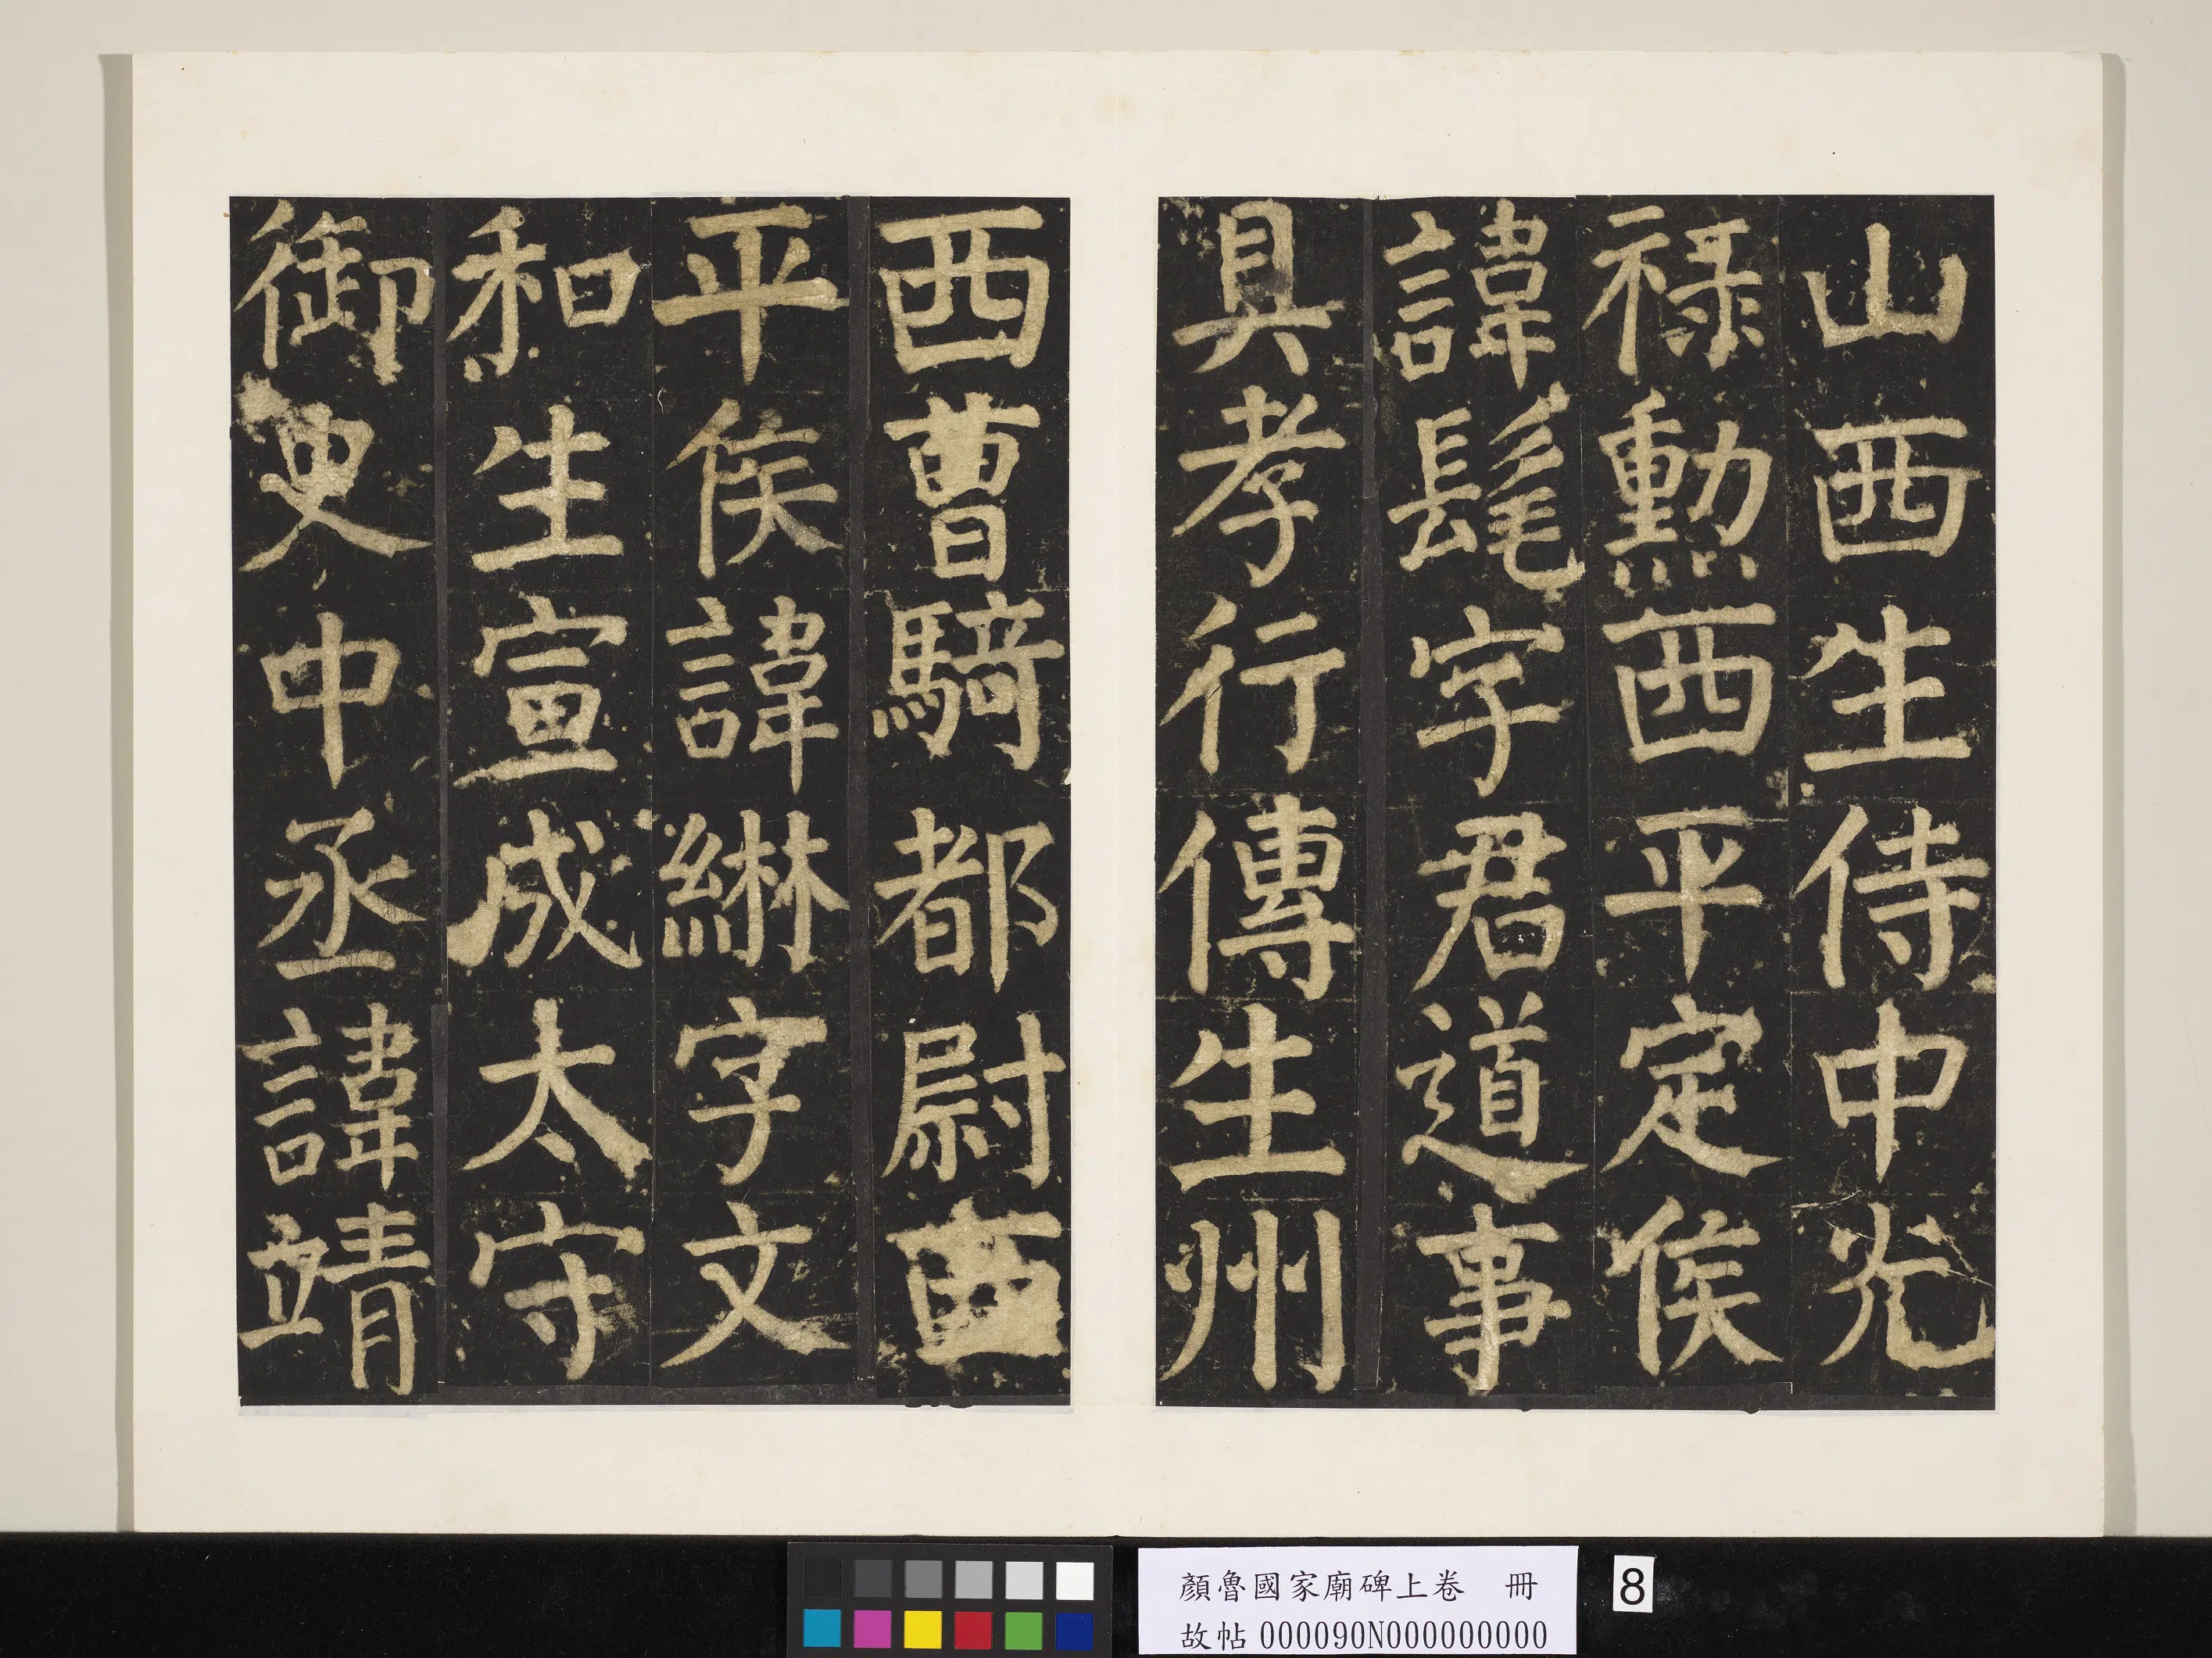 山西生侍中光
祿勳西平定侯
諱髦字君道事
具孝行傳生州
西曹騎都尉西
平侯諱綝字文
和生宣成太守
御史中丞諱靖
顏魯國家廟碑上卷 冊
故帖 000090N000000000
8